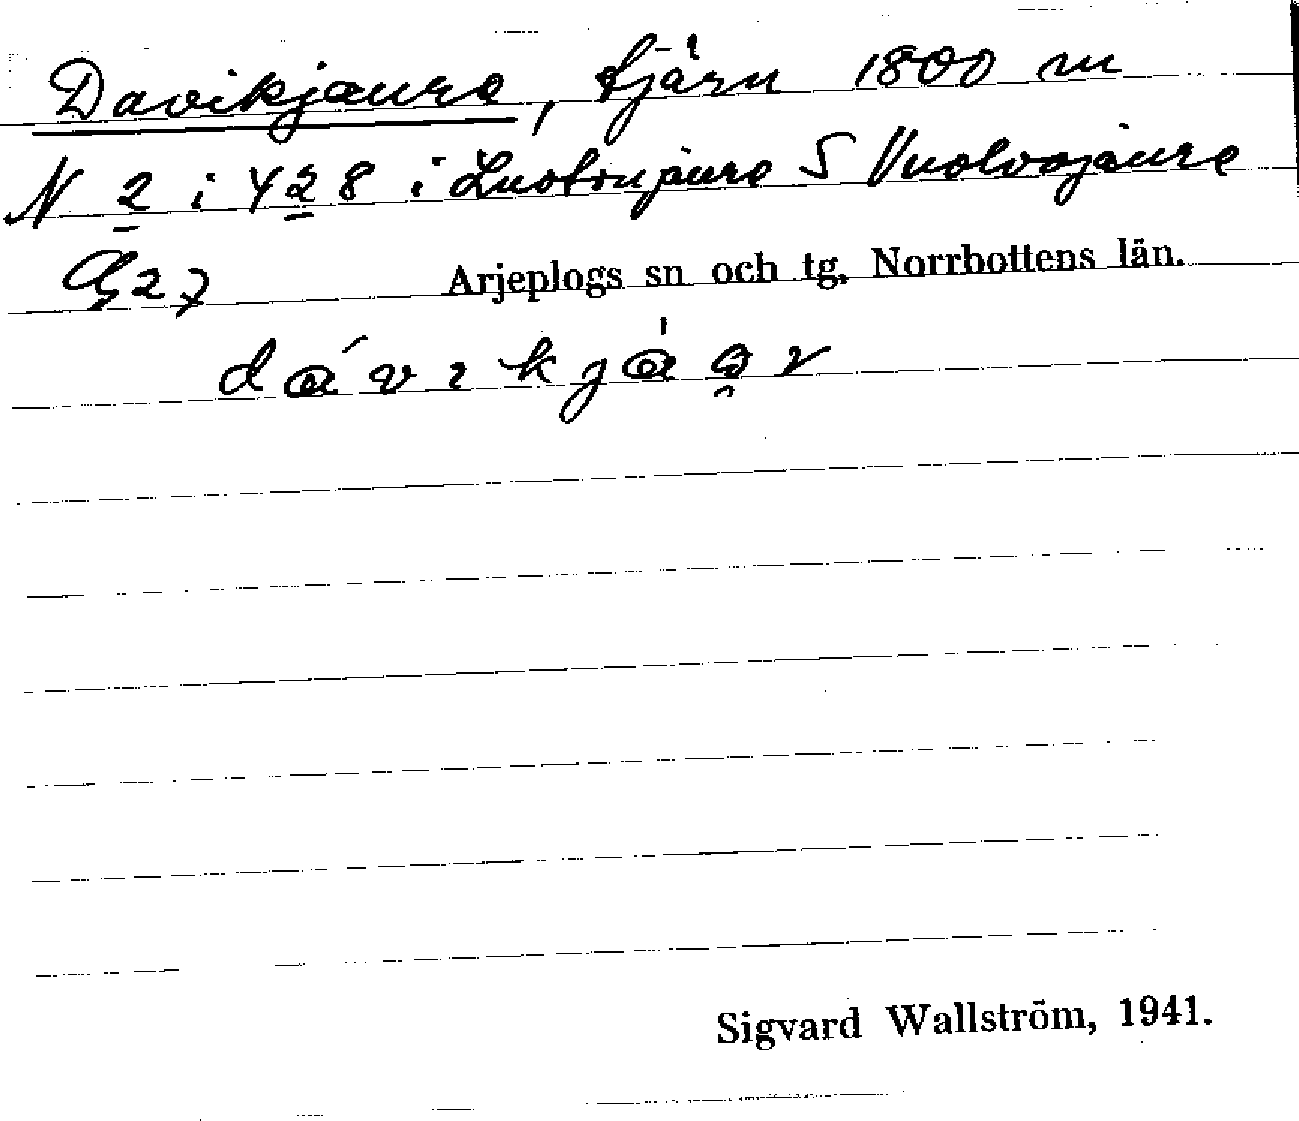 Davikjaure, tjärn 1800 m
N 2 i 428 i Luotnjaure S Vuolvojaure
G27 Arjeplogs sn och tg, Norrbottens län.
dávıkjáọr
Sigvard Wallström, 1941.